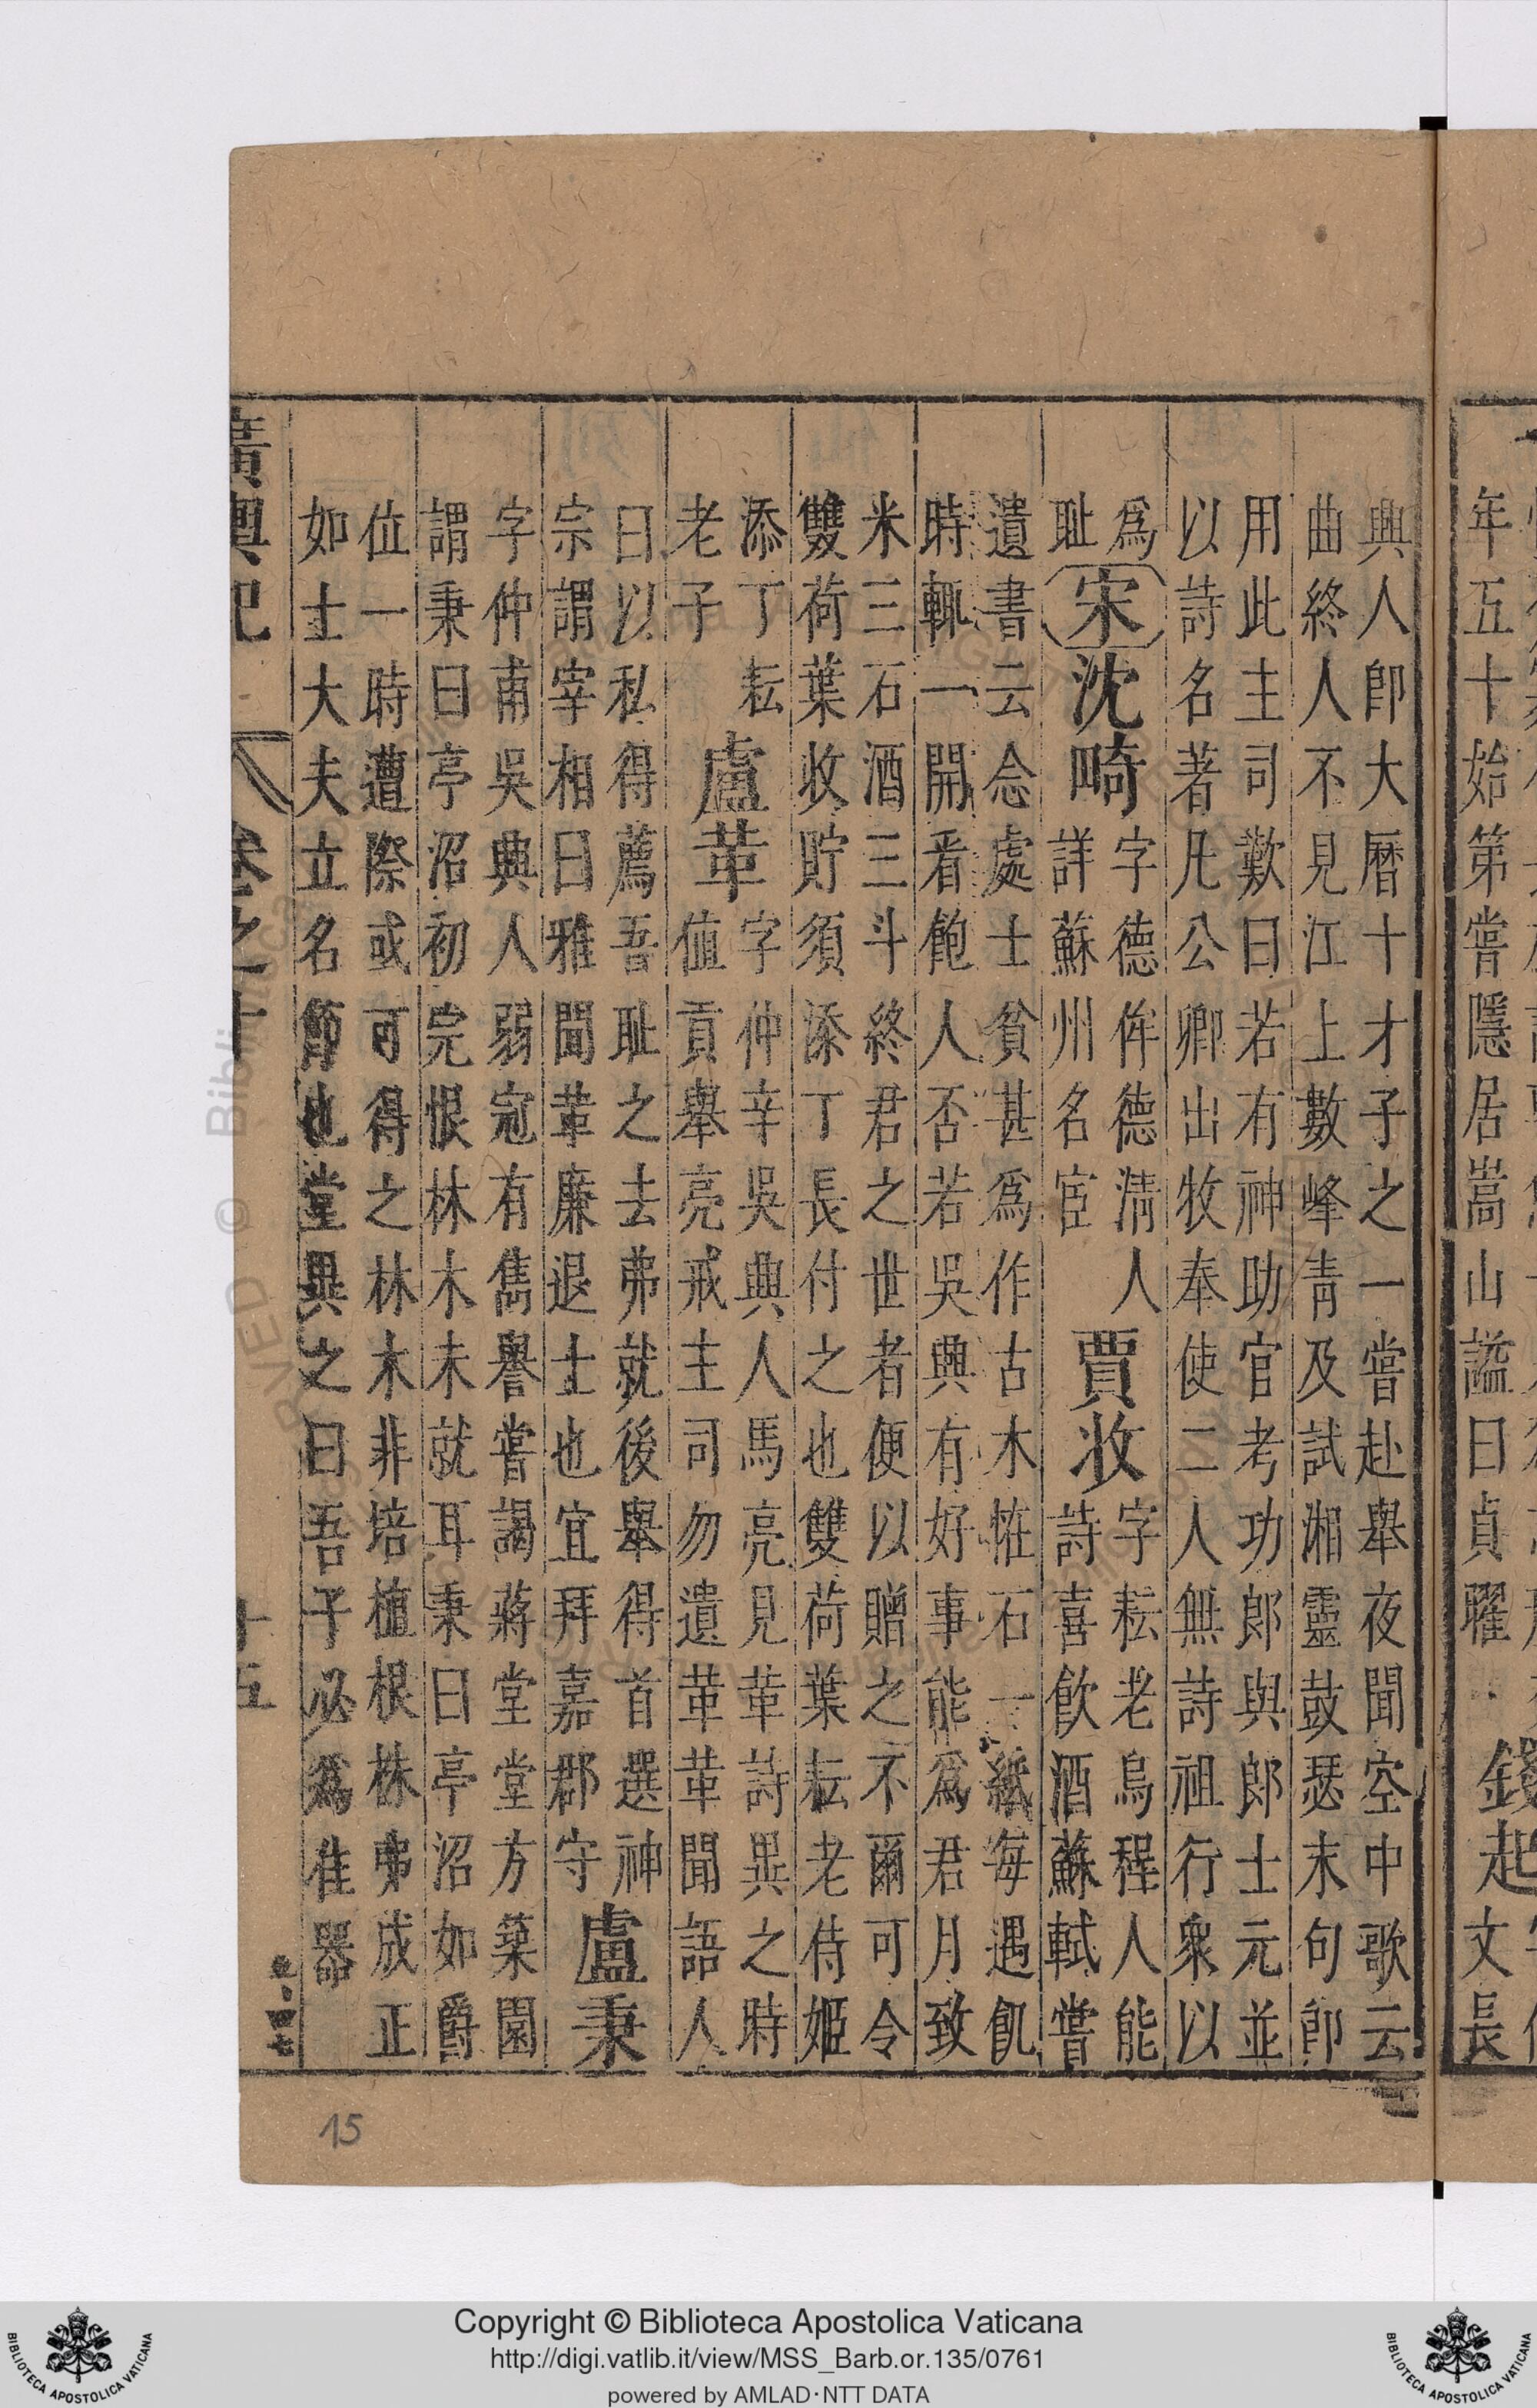 年五十始第嘗隱居嵩山謚曰貞曜
錢起
文長
興人即大曆十才子之一嘗赴舉夜聞空中歌云
曲終人不見江上數峰青及試湘靈鼓瑟末句即
用此主司歎曰若有神助官考功郎與郎士元並
以詩名著凡公卿出牧奉使二人無詩祖行衆以
爲
耻
宋
沈畸
字德侔德淸人
詳蘇州名宦
賈收
字耘老烏程人能
詩喜飲酒蘇軾嘗
遺書云念處士貧甚爲作古木恠石一紙每遇飢
時輒一開看飽人否若吳興有好事能爲君月致
米三石酒三斗終君之世者便以贈之不爾可令
雙荷葉收貯須添丁長付之也雙荷葉耘老侍姬
添丁耘
老子
盧革
字仲辛吳興人馬亮見革詩異之時
值貢舉亮戒主司勿遺革革聞語人
曰以私得薦吾耻之去弗就後舉得首選神
宗謂宰相曰雅聞革廉退士也宜拜嘉郡守
盧秉
字仲甫吳興人弱冠有雋譽嘗謁蔣堂堂方築園
謂秉曰亭沼初完恨林木未就耳秉曰亭沼如爵
位一時遭際或可得之林木非培植根株弗成正
如士大夫立名節也堂異之曰吾子必爲佳器
廣輿記
卷之十
十五
15
Copyright © Biblioteca Apostolica Vaticana
http://digi.vatlib.it/view/MSS_Barb.or.135/0761
powered by AMLAD·NTT DATA